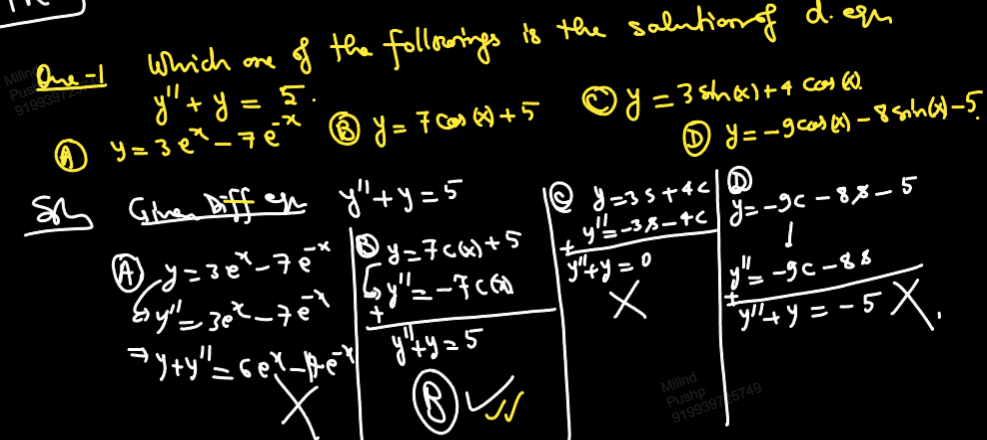 Que-1 Which one of the followings is the solution of d. eqn
y'' + y = 5.
Ⓐ y = 3e^x - 7e^-x Ⓑ y = 7cos(x) + 5 Ⓒ y = 3sin(x) + 4 cos(x). Ⓓ y = -9cos(x) - 8sin(x) - 5.
Sol Given Diff eqn y'' + y = 5
Ⓐ y = 3e^x - 7e^-x
y'' = 3e^x - 7e^-x
⇒ y + y'' = 6e^x - 14e^-x
X
Ⓑ y = 7c(x) + 5
y'' = -7c(x)
+
y'' + y = 5
Ⓑ ✓✓✓
Ⓒ y = 3s + 4c
+ y'' = -3s - 4c
y'' + y = 0
X
Ⓓ
y = -9c - 8s - 5
↓
y'' = -9c - 8s
+
y'' + y = -5 X.
Milind
Pushp
919939725749
Milind
Pushp
919939725749